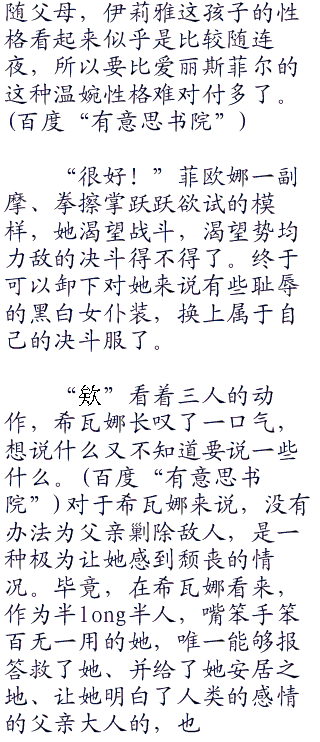 随父母，伊莉雅这孩子的性
格看起来似乎是比较随连
夜，所以要比爱丽斯菲尔的
这种温婉性格难对付多了。
(百度“有意思书院”)
“很好！”菲欧娜一副
摩、拳擦掌跃跃欲试的模
样，她渴望战斗，渴望势均
力敌的决斗得不得了。终于
可以卸下对她来说有些耻辱
的黑白女仆装，换上属于自
己的决斗服了。
“欸”看着三人的动
作，希瓦娜长叹了一口气，
想说什么又不知道要说一些
什么。(百度“有意思书
院”)对于希瓦娜来说，没有
办法为父亲剿除敌人，是一
种极为让她感到颓丧的情
况。毕竟，在希瓦娜看来，
作为半long半人，嘴笨手笨
百无一用的她，唯一能够报
答救了她、并给了她安居之
地、让她明白了人类的感情
的父亲大人的，也